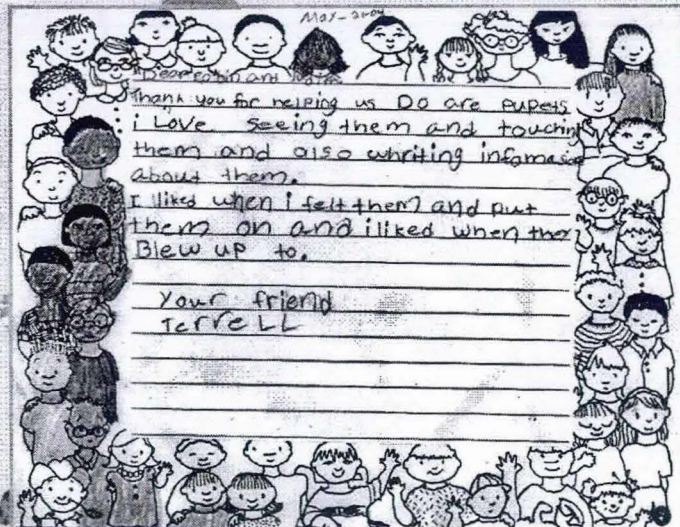 May-2004
Dear robin and
Thank you for helping us Do are pupets
i Love seeing them and touching
them and also whriting infamas
about them.
I liked when i felt them and put
them on and i liked when they
Blew up to.
Your friend
Terrell